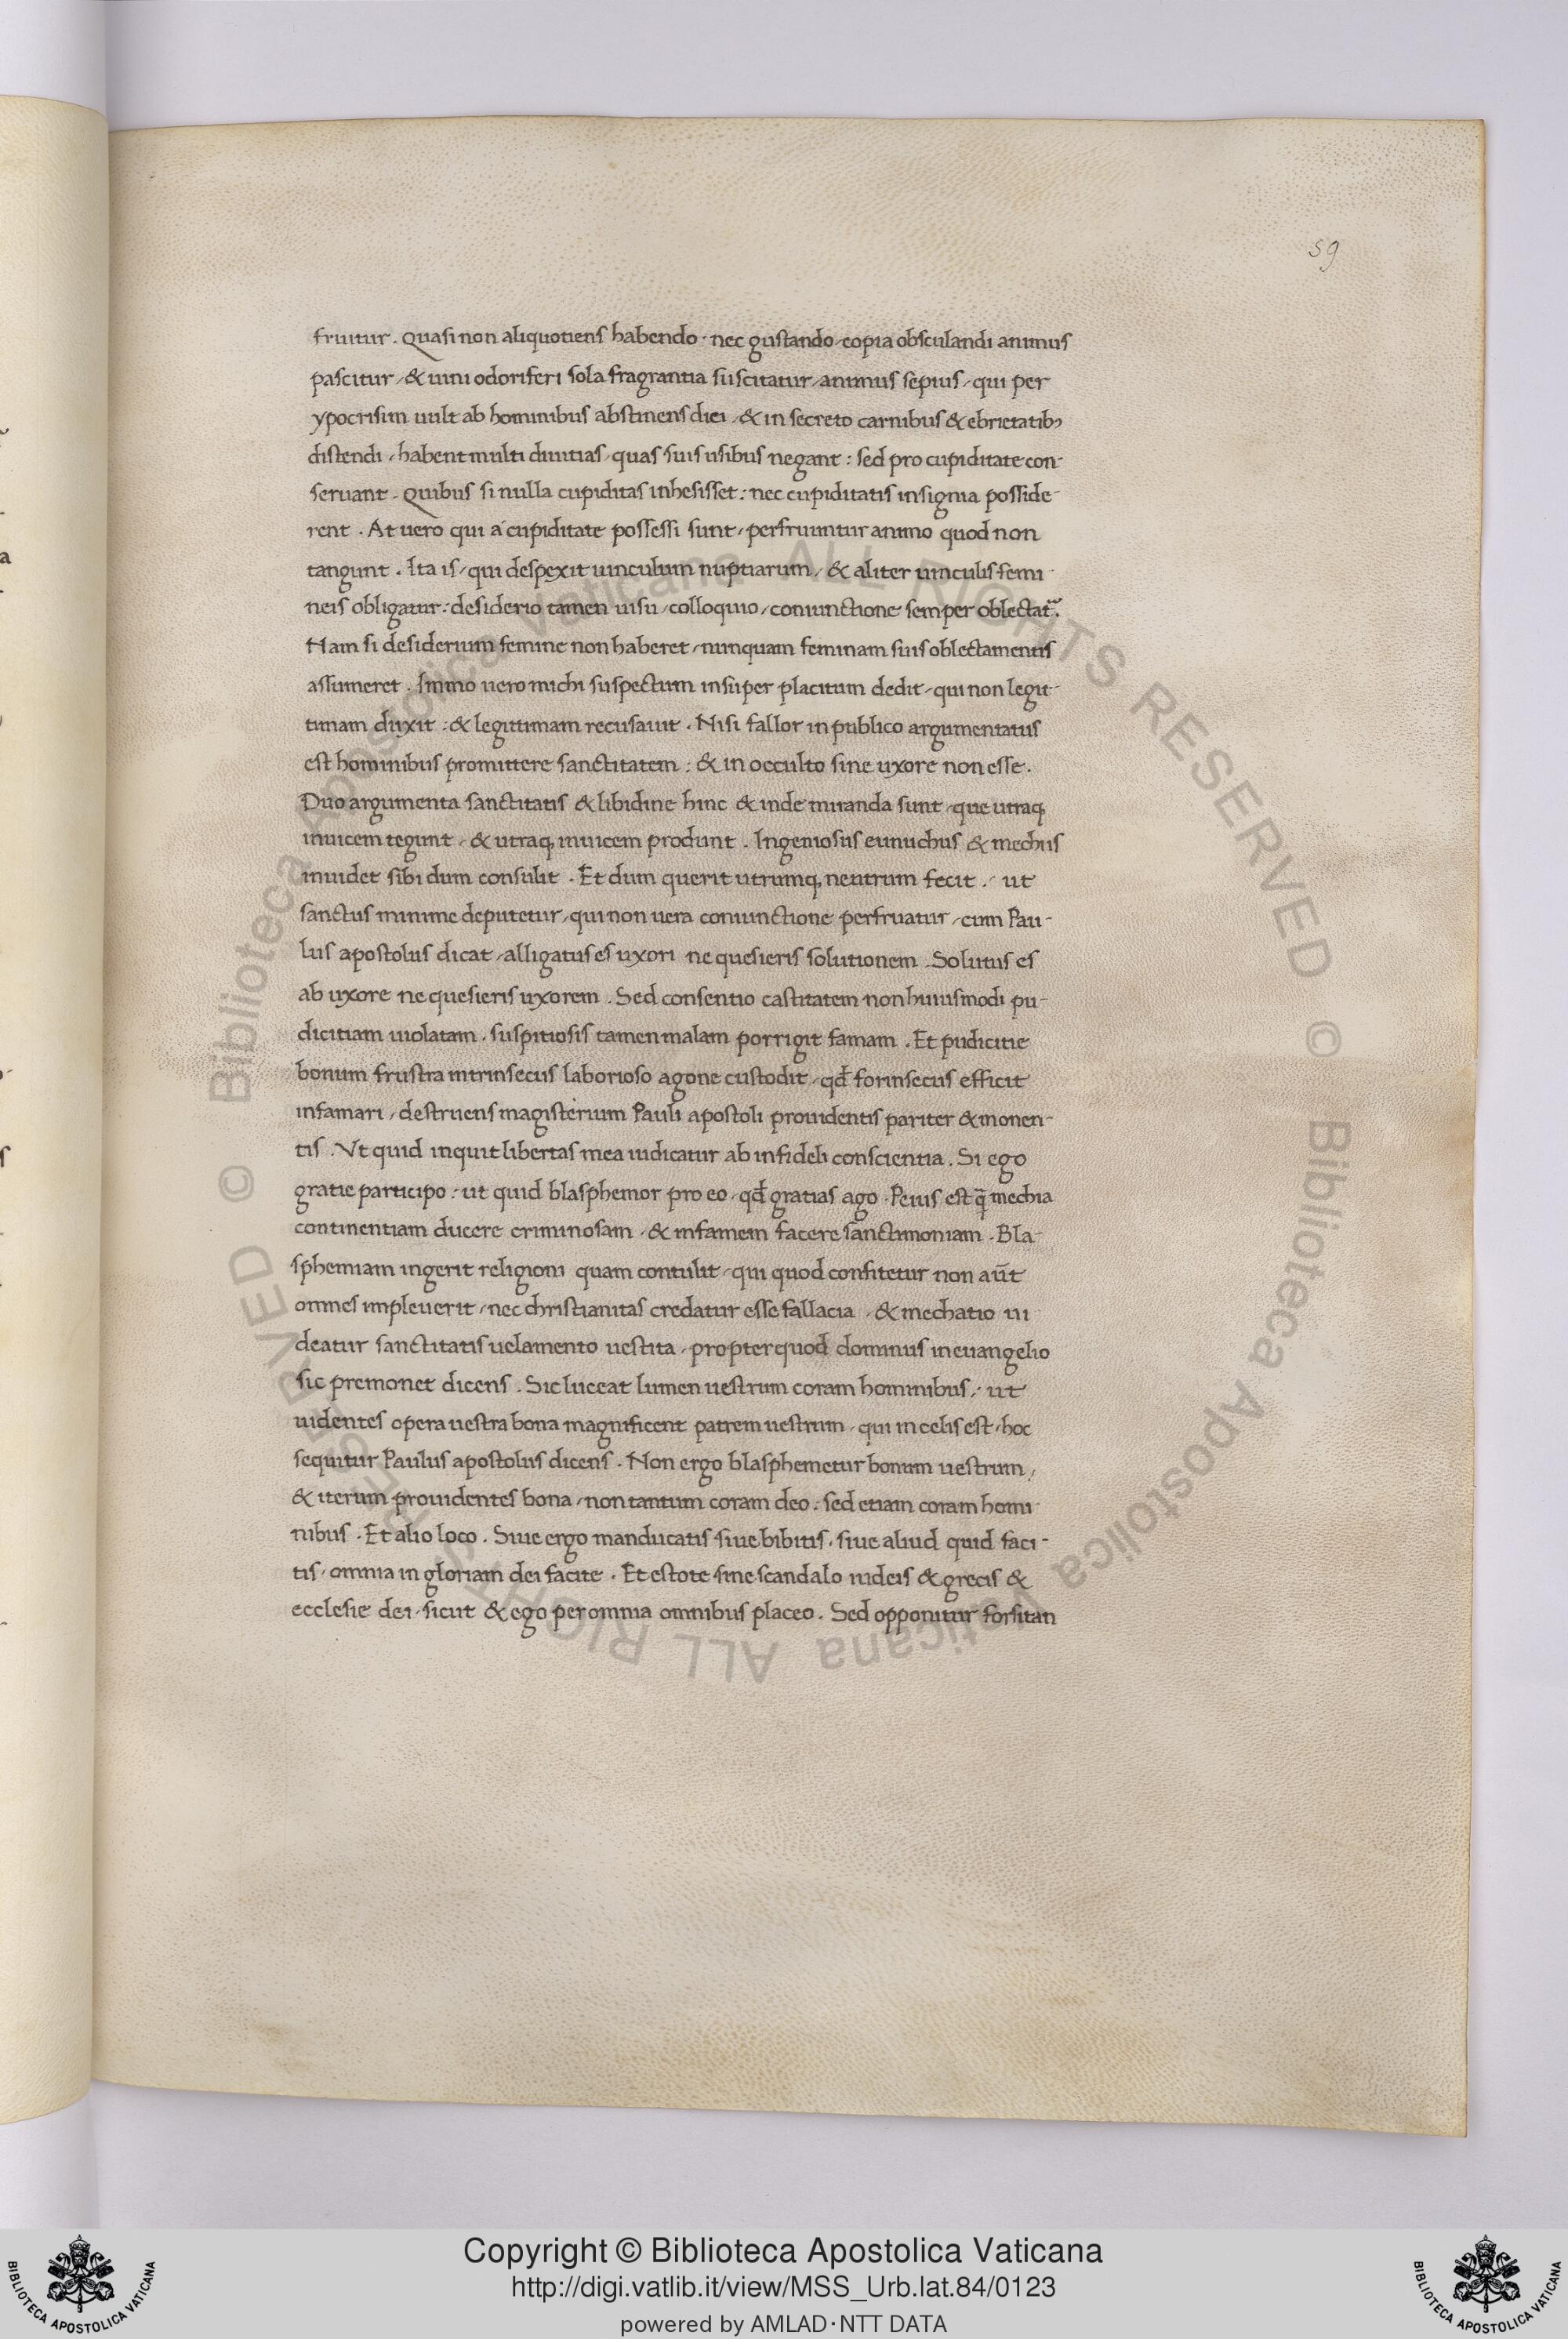 59
fruitur. Quasi non aliquotiens habendo · nec gustando / copia obsculandi animus
pascitur / & uini odoriferi sola fragrantia suscitatur / animus sepius / qui per
ypocrisim uult ab hominibus abstinens dici / & in secreto carnibus & ebrietatibꝫ
distendi / habent multi diuitias / quas suis usibus negant : sed pro cupiditate con-
seruant. Quibus si nulla cupiditas inhesisset : nec cupiditatis insignia posside-
rent. At uero qui á cupiditate possessi sunt / perfruuntur animo quod non
tangunt. Ita is / qui despexit uinculum nuptiarum / & aliter uinculis femi-
neis obligatur : desiderio tamen uisu / colloquio / coniunctione semper oblectat᷑.
Nam si desiderium femine non haberet / nunquam feminam suis oblectamentis
assumeret. Immo uero michi suspectum insuper placitum dedit / qui non legit-
timam duxit : & legittimam recusauit. Nisi fallor in publico argumentatus
est hominibus promittere sanctitatem : & in occulto sine uxore non esse.
Duo argumenta sanctitatis & libidine hinc & inde miranda sunt / que utraqꝫ
inuicem tegunt / & utraqꝫ inuicem produnt. Ingeniosus eunuchus & mechus
inuidet sibi dum consulit. Et dum querit utrumqꝫ neutrum fecit : ut
sanctus minime deputetur / qui non uera coniunctione perfruatur / cum Pau-
lus apostolus dicat / alligatus es uxori ne quesieris solutionem. Solutus es
ab uxore ne quesieris uxorem. Sed consentio castitatem non huiusmodi pu-
dicitiam uiolatam. suspitiosis tamen malam porrigit famam. Et pudicitie
bonum frustra intrinsecus laborioso agone custodit / qđ forinsecus efficit
infamari / destruens magisterium Pauli apostoli prouidentis pariter & monen-
tis. Vt quid inquit libertas mea iudicatur ab infideli conscientia. Si ego
gratie participo : ut quid blasphemor pro eo / qđ gratias ago. Peius est q̄ mechia
continentiam ducere criminosam / & infamem facere sanctimoniam. Bla-
sphemiam ingerit religioni quam contulit / qui quod confitetur non aūt
omnes impleuerit / nec christianitas credatur esse fallacia / & mechatio ui
deatur sanctitatis uelamento uestita / propter quod dominus in euangelio
sic premonet dicens. Sic luceat lumen uestrum coram hominibus / ut
uidentes opera uestra bona magnificent patrem uestrum / qui in celis est / hoc
sequitur Paulus apostolus dicens. Non ergo blasphemetur bonum uestrum /
& iterum prouidentes bona / non tantum coram deo : sed etiam coram homi-
nibus. Et alio loco. Siue ergo manducatis siue bibitis / siue aliud quid faci-
tis / omnia in gloriam dei facite. Et estote sine scandalo iudeis & grecis &
ecclesie dei / sicut & ego per omnia omnibus placeo. Sed opponitur forsitan
© Biblioteca Apostolica Vaticana ALL RIGHTS RESERVED
© Biblioteca Apostolica Vaticana ALL RIGHTS RESERVED
Copyright © Biblioteca Apostolica Vaticana
http://digi.vatlib.it/view/MSS_Urb.lat.84/0123
powered by AMLAD·NTT DATA
BIBLIOTECA APOSTOLICA VATICANA
BIBLIOTECA APOSTOLICA VATICANA